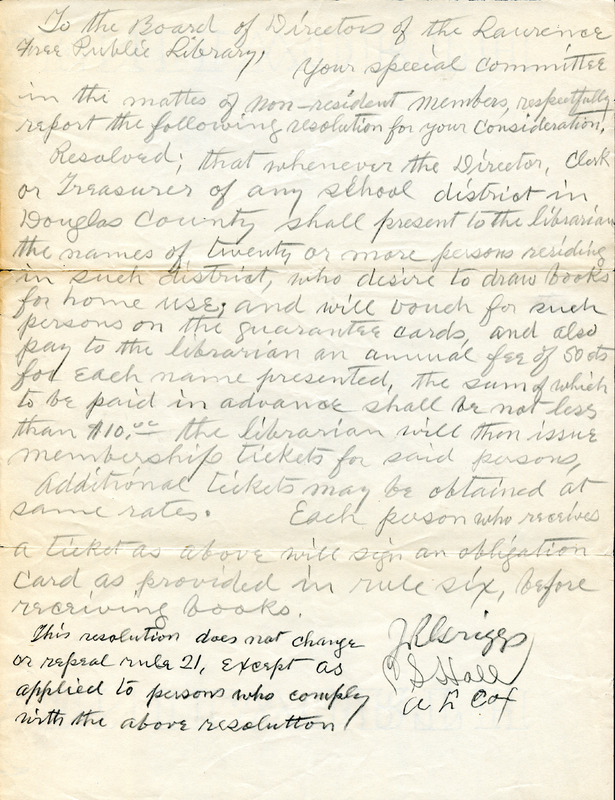 To the Board of Directors of the Lawrence
Free Public Library,
Your special committee
in the matter of non-resident members, respectfully
report the following resolution for your consideration,
Resolved; that whenever the Director, Clerk
or Treasurer of any school district in
Douglas County shall present to the librarian
the names of twenty or more persons residing
in such district, who desire to draw books
for home use; and will vouch for such
persons on the guarantee cards, and also
pay to the librarian an annual fee of 50 cts
for each name presented, the sum of which
to be paid in advance shall be not less
than $10.00 the librarian will then issue
membership tickets for said persons,
Additional tickets may be obtained at
same rates. Each person who receives
a ticket as above will sign an obligation
card as provided in rule six, before
receiving books.
This resolution does not change
or repeal rule 21, except as
applied to persons who comply
with the above resolution
J R Griggs
P S Hall
A L Cox